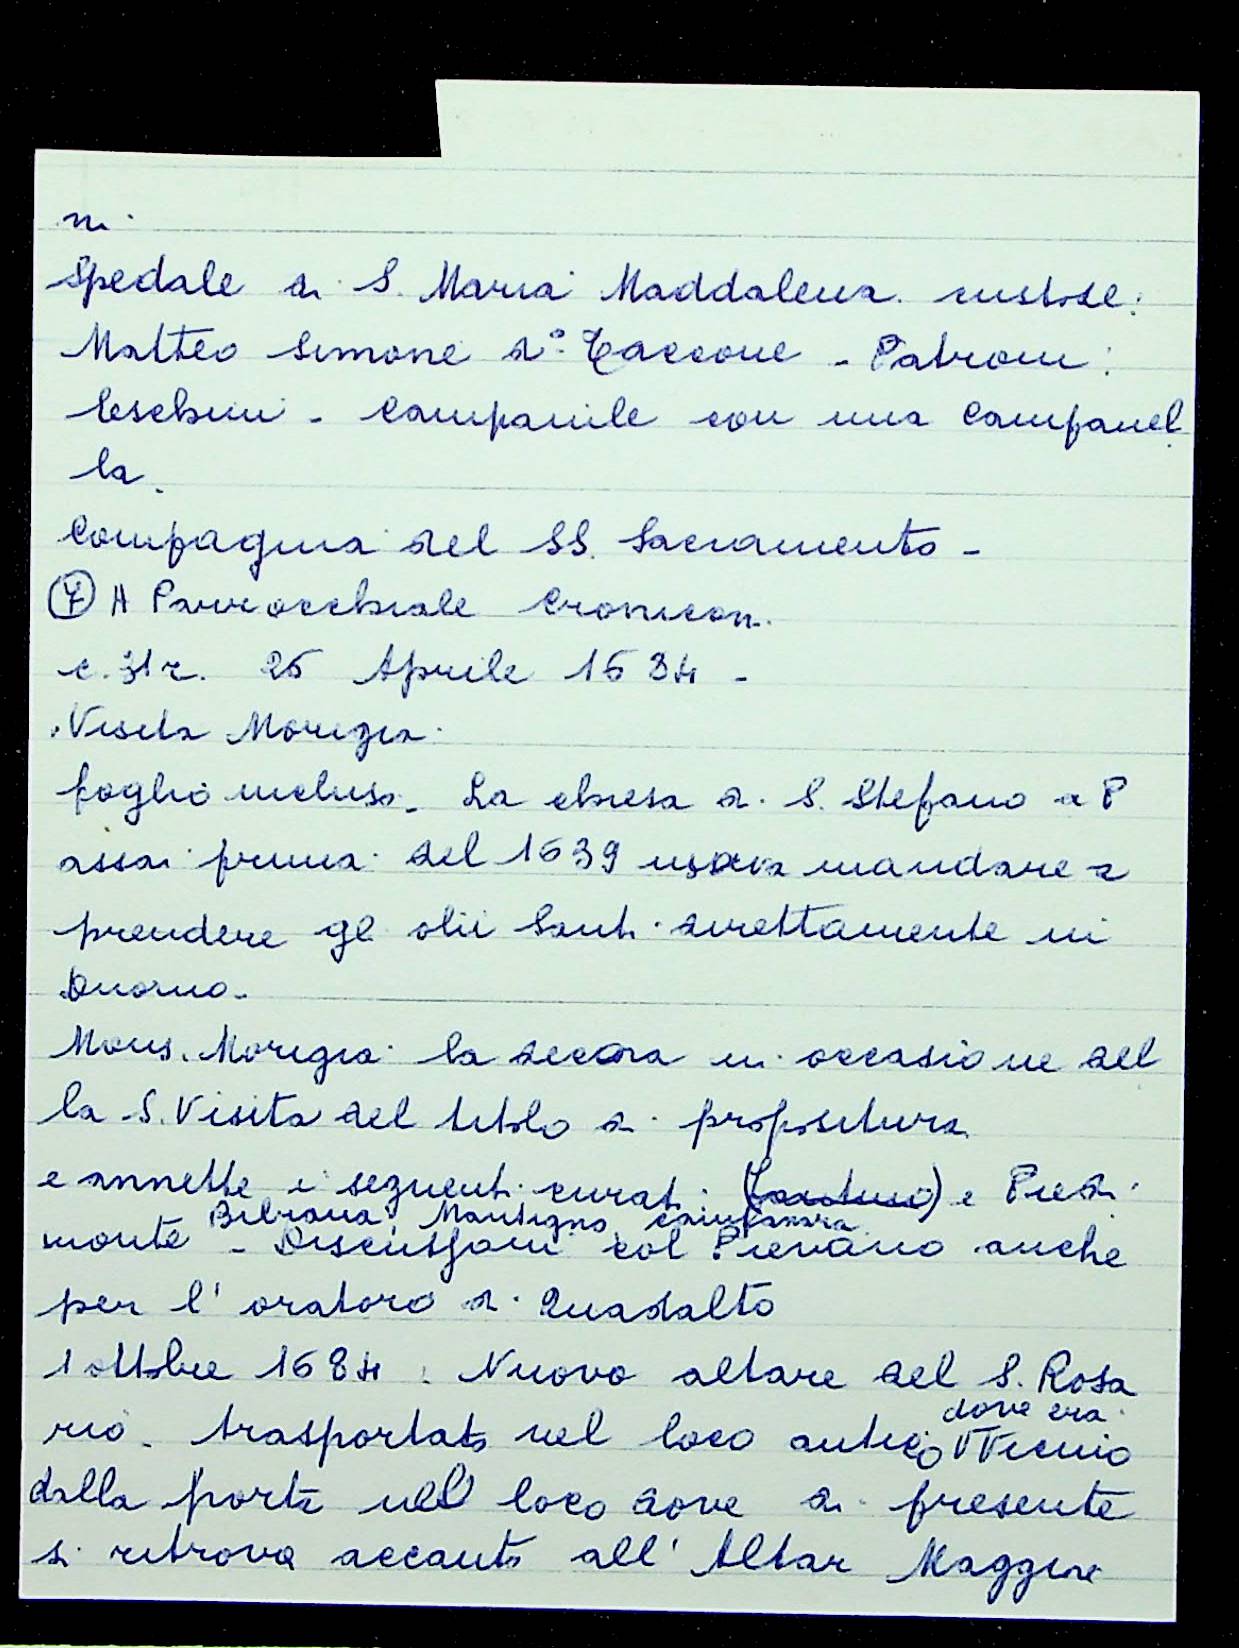 ni.
Spedale di S. Maria Maddalena. custode:
Matteo Simone di Taccone - Patroni:
Ceschini - Campanile con una Campanel
la.
Compagnia del SS. Sacramento -
7 A Parrocchiale Cronicon.
c. 31 r. 25 Aprile 1684 -
Visita Morigia.
foglio incluso. La chiesa di S. Stefano a P
assai prima del 1639 usava mandare a
prendere gl olii Santi direttamente in
Duomo.
Mons. Morigia la decora in occasione del
la S. Visita del titolo di propositura
e annette i seguenti curati e Piedi
Bibbiana, Mantigno, Campanara
monte - Discussioni col Pievano anche
per l'oratoro di Quadalto
1 ottobre 1684. Nuovo altare del S. Rosa
dove era
rio. trasportato nel loco antico V Vicino
dalla porta nel loco dove di presente
si ritrova accanto all'Altar Maggiore